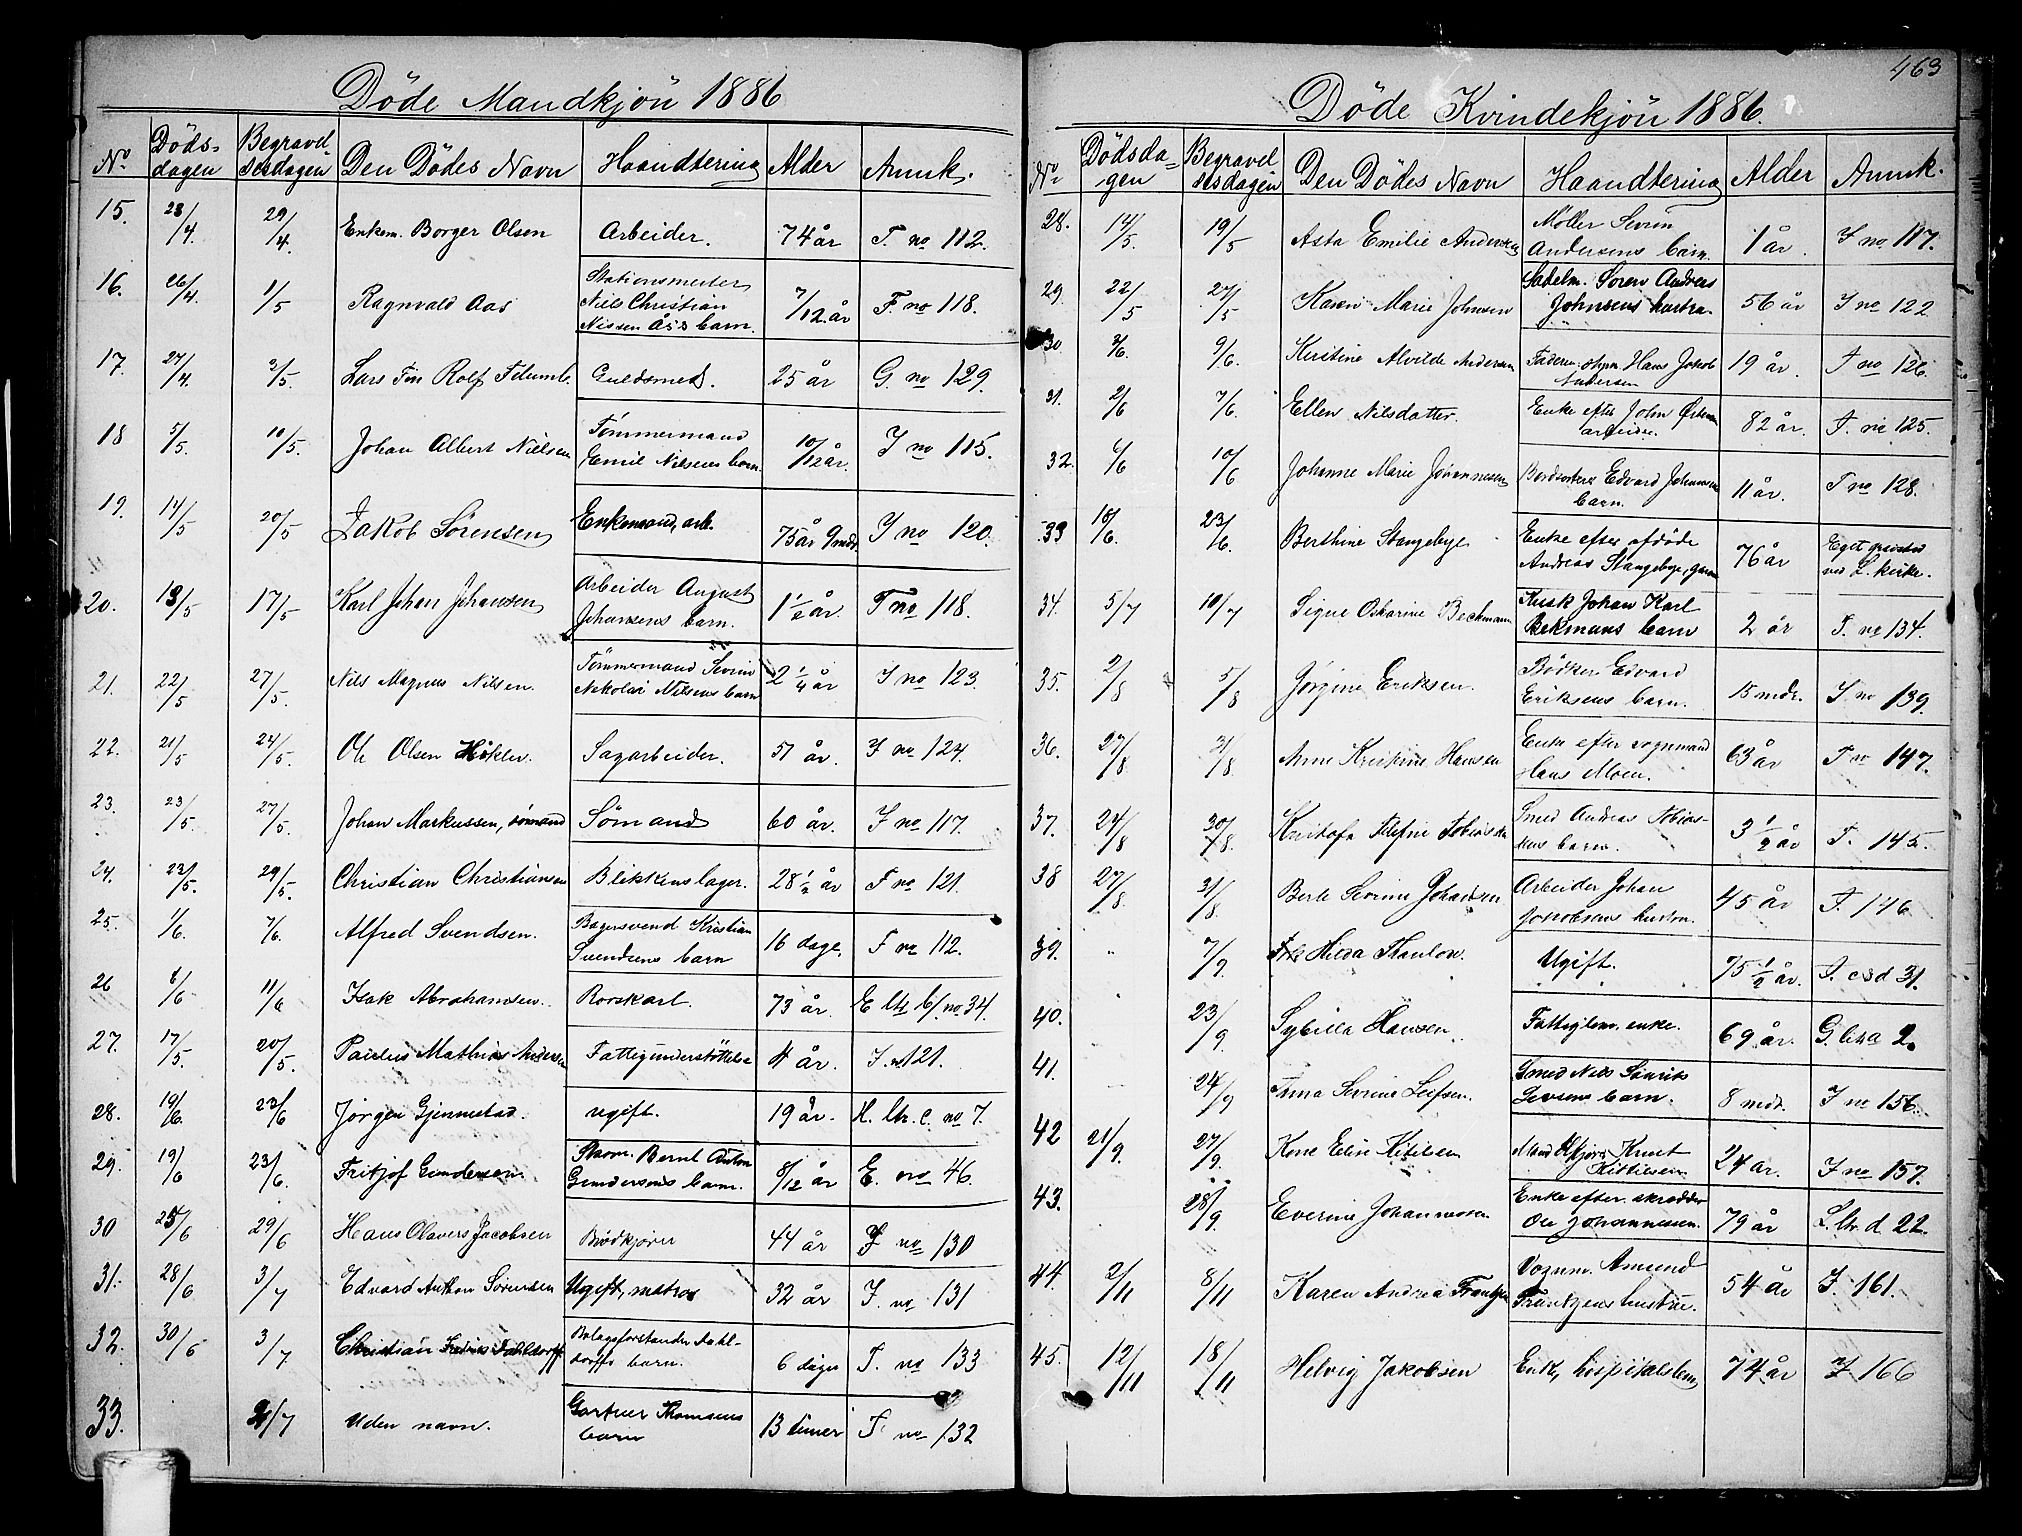 463
Döde Mandkjön 1886
No Döds-dagen Begravelsesdagen Den Dödes Navn Haandtering Alder Anmk.
15. 23/4. 29/4. Enkem. Borger Olsen Arbeider. 74 år F. no 112.
16. 26/4. 1/5 Ragnvald Aas Stationsmester
Niels Christian 7/12 år F. no 118.
Nissen Ås's barn.
17. 27/4. 3/5. Lars Rolf Guldsmed. 25 år G. no 129.
18 5/5. 10/5. Johan Albert Nielsen Tømmermand
Emil Nilsens barn. 10/12 år. F no 115.
19. 14/5 20/5 Jakob Sørensen Enkemand, arb. 75 år 9 mdr F no 120.
20. 13/5 17/5 Karl Johan Johansen Arbeider August
Johansens barn. 1 1/2 år. F no 118.
21. 22/5 27/5. Nils Magnus Nilsen. Tømmermand Severin
Nikolai Nilsens barn 2 1/4 år F no 123.
22. 21/5 24/5. Ole Olsen Sagarbeider. 51 år. F no 124.
23. 23/5. 27/5. Johan Markussen, sømand Sømand 60 år. F no 117.
24. 23/5. 29/5. Christian Christiansen Blikkenslager. 28 1/2 år F no 121.
25. 1/6. 7/6. Alfred Svendsen. Bagersvend Kristian
Svendsens barn 16 dage. F no 112.
26 8/6 11/6 Isak Abrahamsen. Rorskarl. 73 år. E ltr b/. no 34.
27. 17/5 20/5. Paulus Mathias Andersen Fattigunderstøttelse 4 år. F. no 121.
28. 19/6. 23/6 Jørgen Gjennestad. ugift. 19 år. H. ltr. c. no 7.
29. 19/6 23/6. Fritjof Gundersen. Skom. Bernt Anton
Gundersens barn. 8/12 år E. no 46.
30 25/6 29/6 Hans Olavers Jacobsen Brødkjører 44 år F no 130
31. 28/6 3/7 Edvard Anthon Sørensen Ugift, matros 32 år F. no 131
32. 30/6 3/7 Christian Dahldorff Bolagsforstander Dahl-
dorffs barn. 6 dage F. no 133
33. 4/7 Uden navn. Gartner Thomsens
barn 13 timer F. no 132
Döde Kvindekjön 1886.
No Dödsda-gen Begravelsesdagen Den Dödes Navn Haandtering Alder Anmk.
28. 14/5. 19/5 Asta Emilie Andersen Møller Severin
Andersens barn. 1 år. F no 117.
29. 22/5 27/5. Karen Marie Johnsen Sadelm. Soren Andreas
Johnsens hustru. 56 år F no 122
30. 3/6. 9/6. Kirstine Alvilde Andersen Faderen: Hans Jakob
Andersen 19 år. F no 126.
31. 2/6 7/6. Ellen Nilsdatter. Enke efter John
arbeider. 82 år. F. no 125.
32. 6/6 10/6 Johanne Marie Johannesen Bordsorterer Edvard Johannesens
barn. 11 år. F no 128.
33 18/6. 23/6. Berthine Stangebye Enke efter afdöde
Andreas Stangebye, 76 år Eget gravsted
ved L. kirke.
34. 5/7 10/7 Signe Oskarine Beckmann Kusk Johan Karl
Bekmans barn 2 år F. no 134.
35. 2/8 5/8 Jørgine Eriksen. Bødker Edvard
Eriksens barn. 15 mdr. F. no 139.
36. 27/8. 31/8. Anne Kristine Hansen Enke efter vognmand
Hans Moen. 63 år F no 147.
37. 24/8 30/8. Kristofa Tobiasen Smed Andreas Tobias-
sens barn. 3 1/2 år F. 145.
38 27/8. 31/8. Berte Severine Johansen Arbeider Johan
Jakobsens hustru. 45 år F. 146
39. " 7/9. Hilda Thaulow. Ugift. 75 1/2 år. F. c 3d 31.
40. 23/9. Sybilla Hansen. Fattiglem. enke. 69 år. G. ltr a 2.
41. 24/9 Anna Severine Leifsen. Smed Nils
barn. 8 mdr. F no 156.
42 21/9. 27/9. Kone Elise Kitilsen Knut
Kittilsen 24 år. F no 157.
43. 28/9. Everine Johannessen Enke efter skrædder
Ole Johannessen. 79 år L. ltr. d 22.
44. 2/11 8/11 Karen Andrea Frantzen Vognm. Amund
Frantzens hustru. 54 år F. 161.
45. 12/11 18/11 Helvig Jakobsen Enke, hospitalslem 74 år F 166